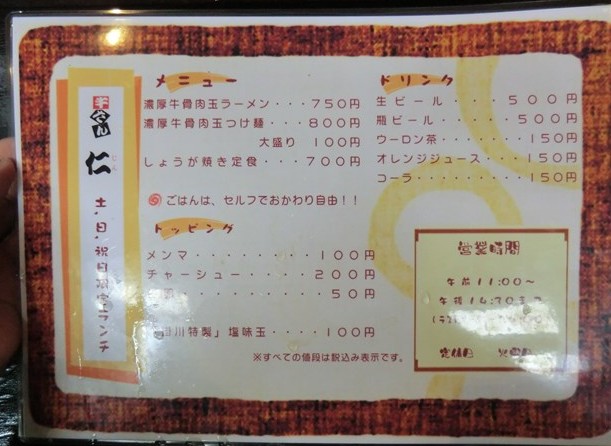 仁
じん
土、日、祝日限定ランチ
メニュー
濃厚牛骨肉玉ラーメン・・・７５０円
濃厚牛骨肉玉つけ麺・・・８００円
大盛り　１００円
しょうが焼き定食・・・７００円
ごはんは、セルフでおかわり自由！！
トッピング
メンマ・・・・・・・・１００円
チャーシュー・・・・・２００円
・・・・・・５０円
特製」塩味玉・・・・１００円
※すべての値段は税込み表示です。
ドリンク
生ビール・・・５００円
瓶ビール・・・・５００円
ウーロン茶・・・・・１５０円
オレンジジュース・・・１５０円
コーラ・・・・・・・・１５０円
営業時間
午前１１：００～
午後１４：３０まで
定休日